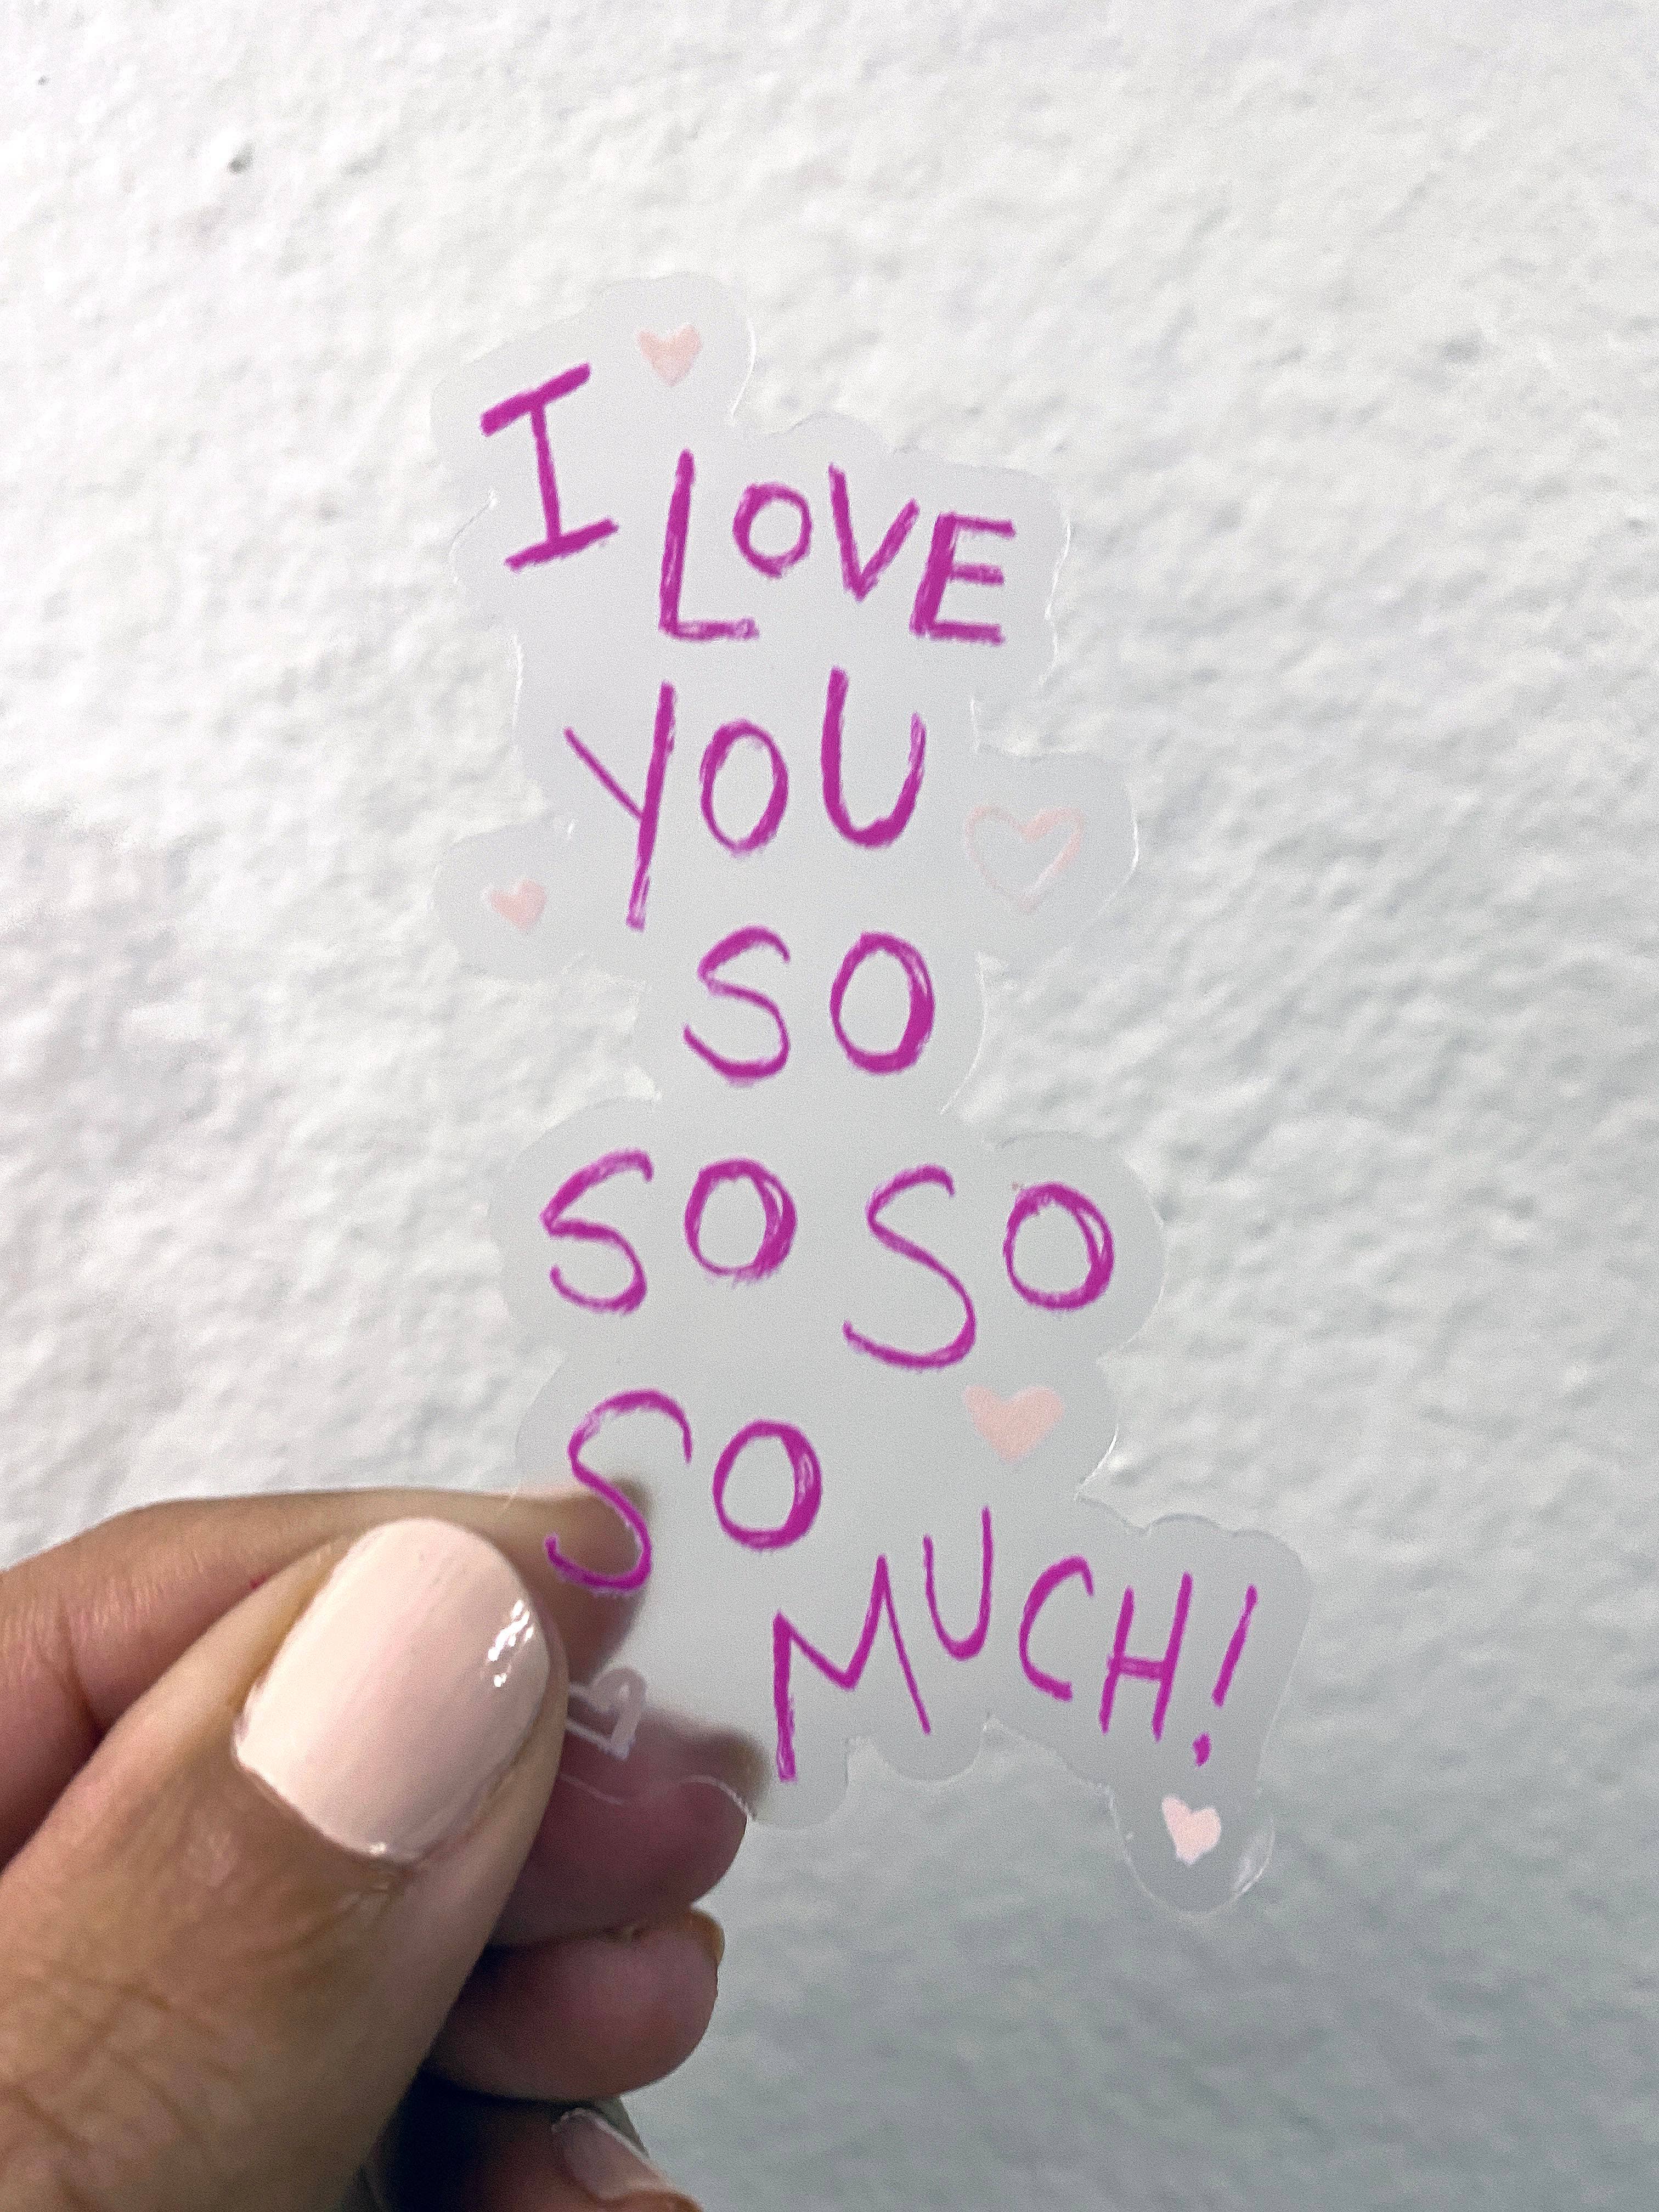 I LOVE
YOU
SO
SO SO
SO
MUCH!